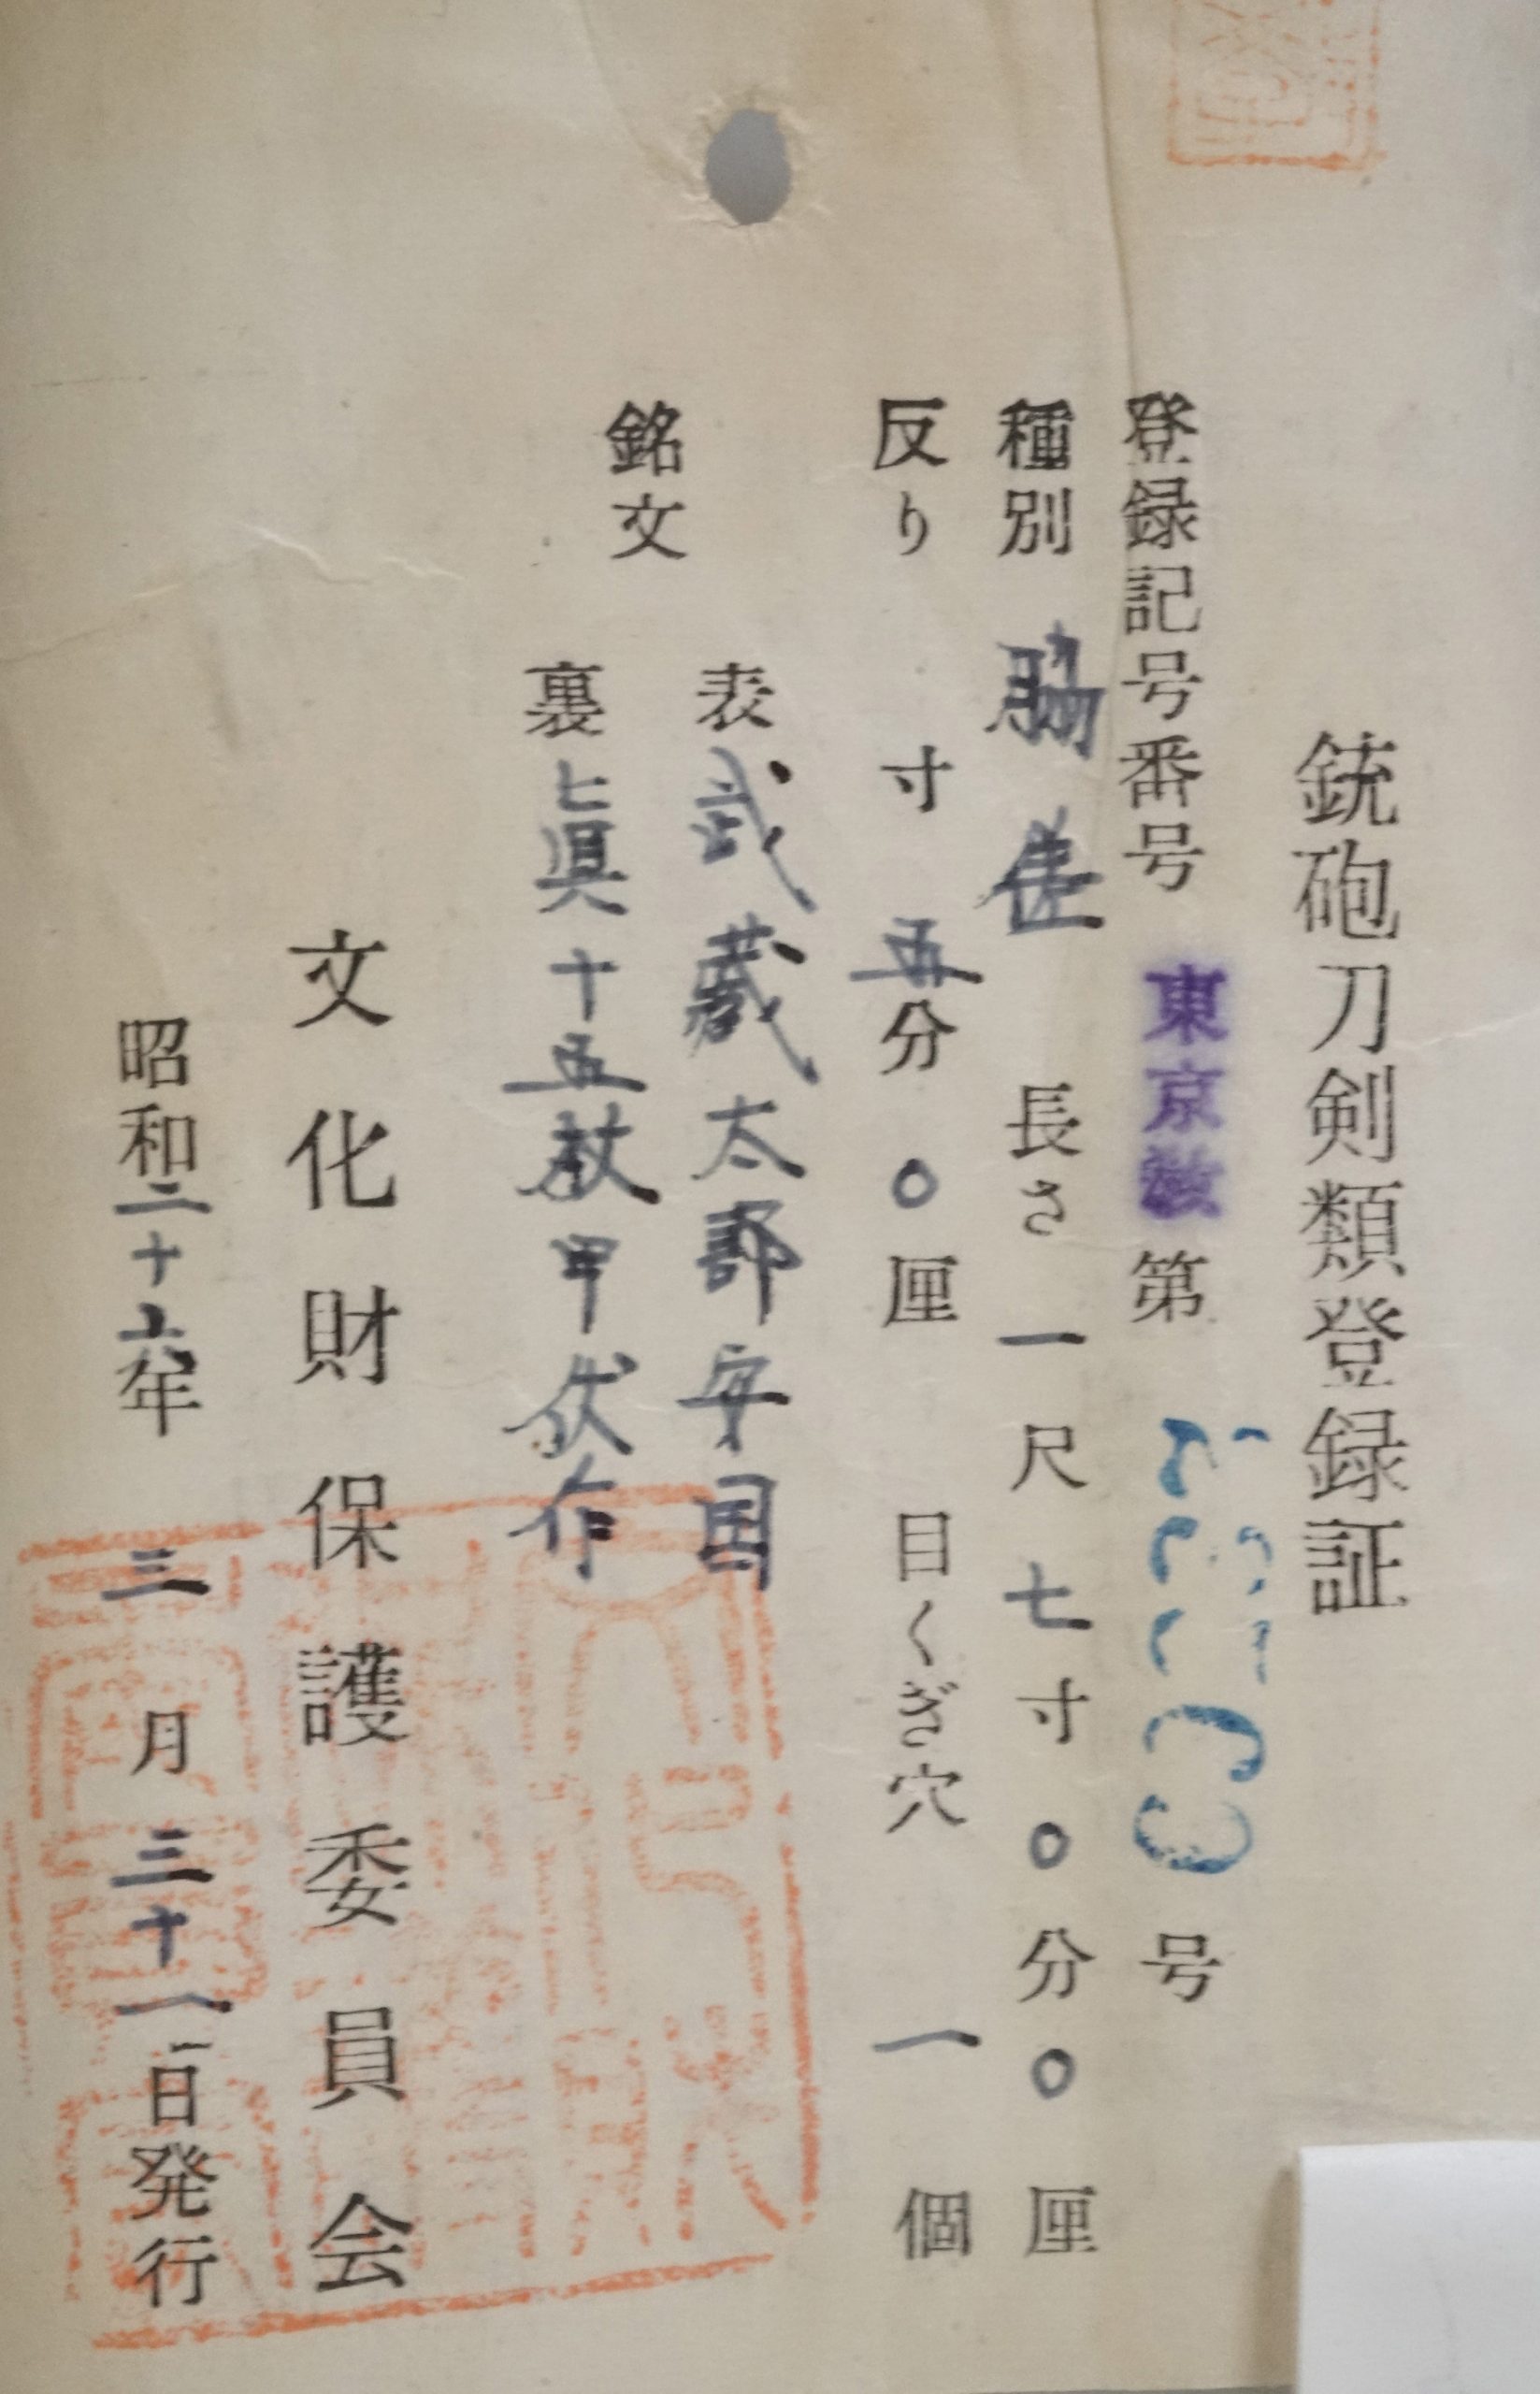 銃砲刀剣類登録証
登録記号番号 東京教 第 号
種別 脇差 長さ 一尺七寸〇分〇厘
反り 寸五分〇厘 目くぎ穴 一個
銘文
表 武蔵太郎安国
裏 眞十五枚甲伏作
文化財保護委員会
昭和二十六年三月三十一日発行